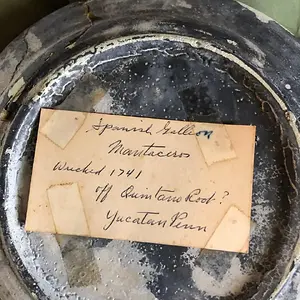 Spanish Gallion
Mantaceros
Wrecked 1741
off Quintano Root?
Yucatan Penn